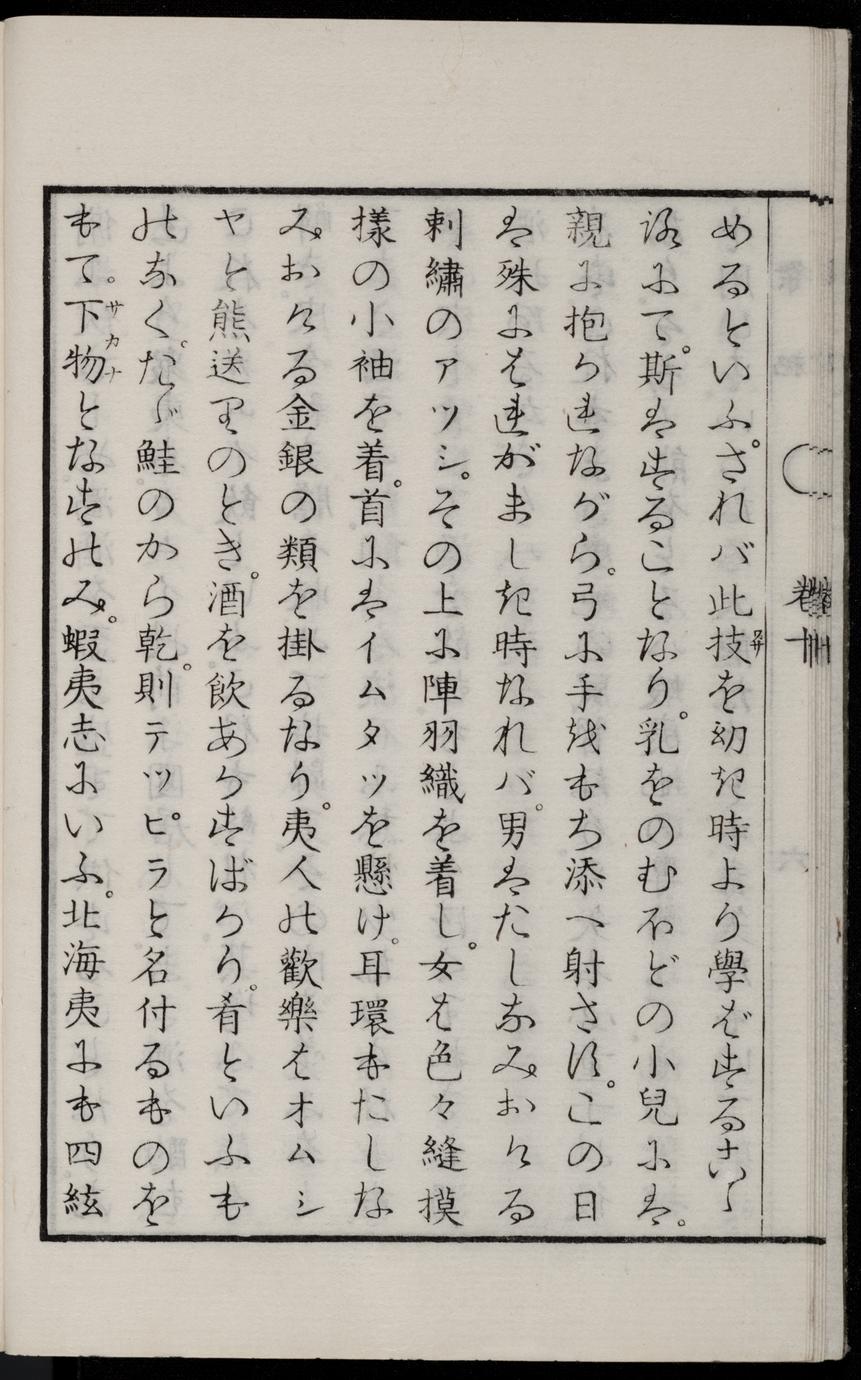 めるといふ。されバ此技ワザを幼き時より學ばするこゝ
ろにて。斯はすることなり。乳をのむほどの小兒には。
親に抱かれながら。弓に手をもち添へ射さす。この日
は殊にはれがましき時なれバ。男はたしなみおける
刺繍のアツシ。その上に陣羽織を着し。女は色々縫摸
樣の小袖を着。首にはイムタツを懸け。耳環もたしな
みおける金銀の類を掛るなり。夷人の歡樂はオムシ
ヤと熊送りのとき。酒を飲あかすばかり。肴といふも
のなく。たゞ鮭のから乾。則テツピラと名付るものを
もて。下物サカナとなすのみ。蝦夷志にいふ。北海夷にも四絃
卷十